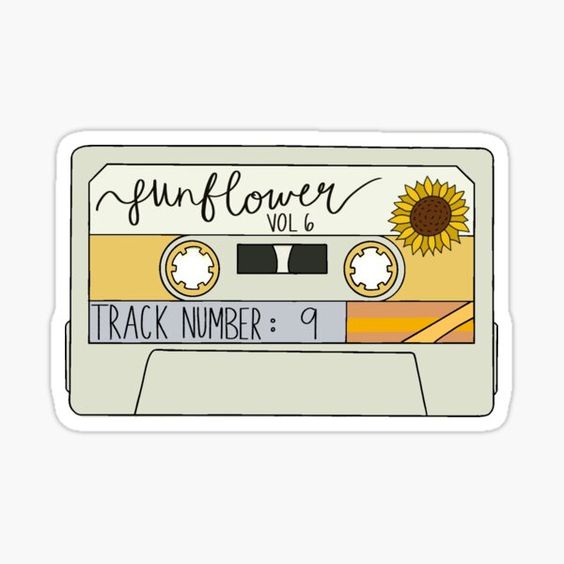 sunflower
VOL 6
TRACK NUMBER: 9